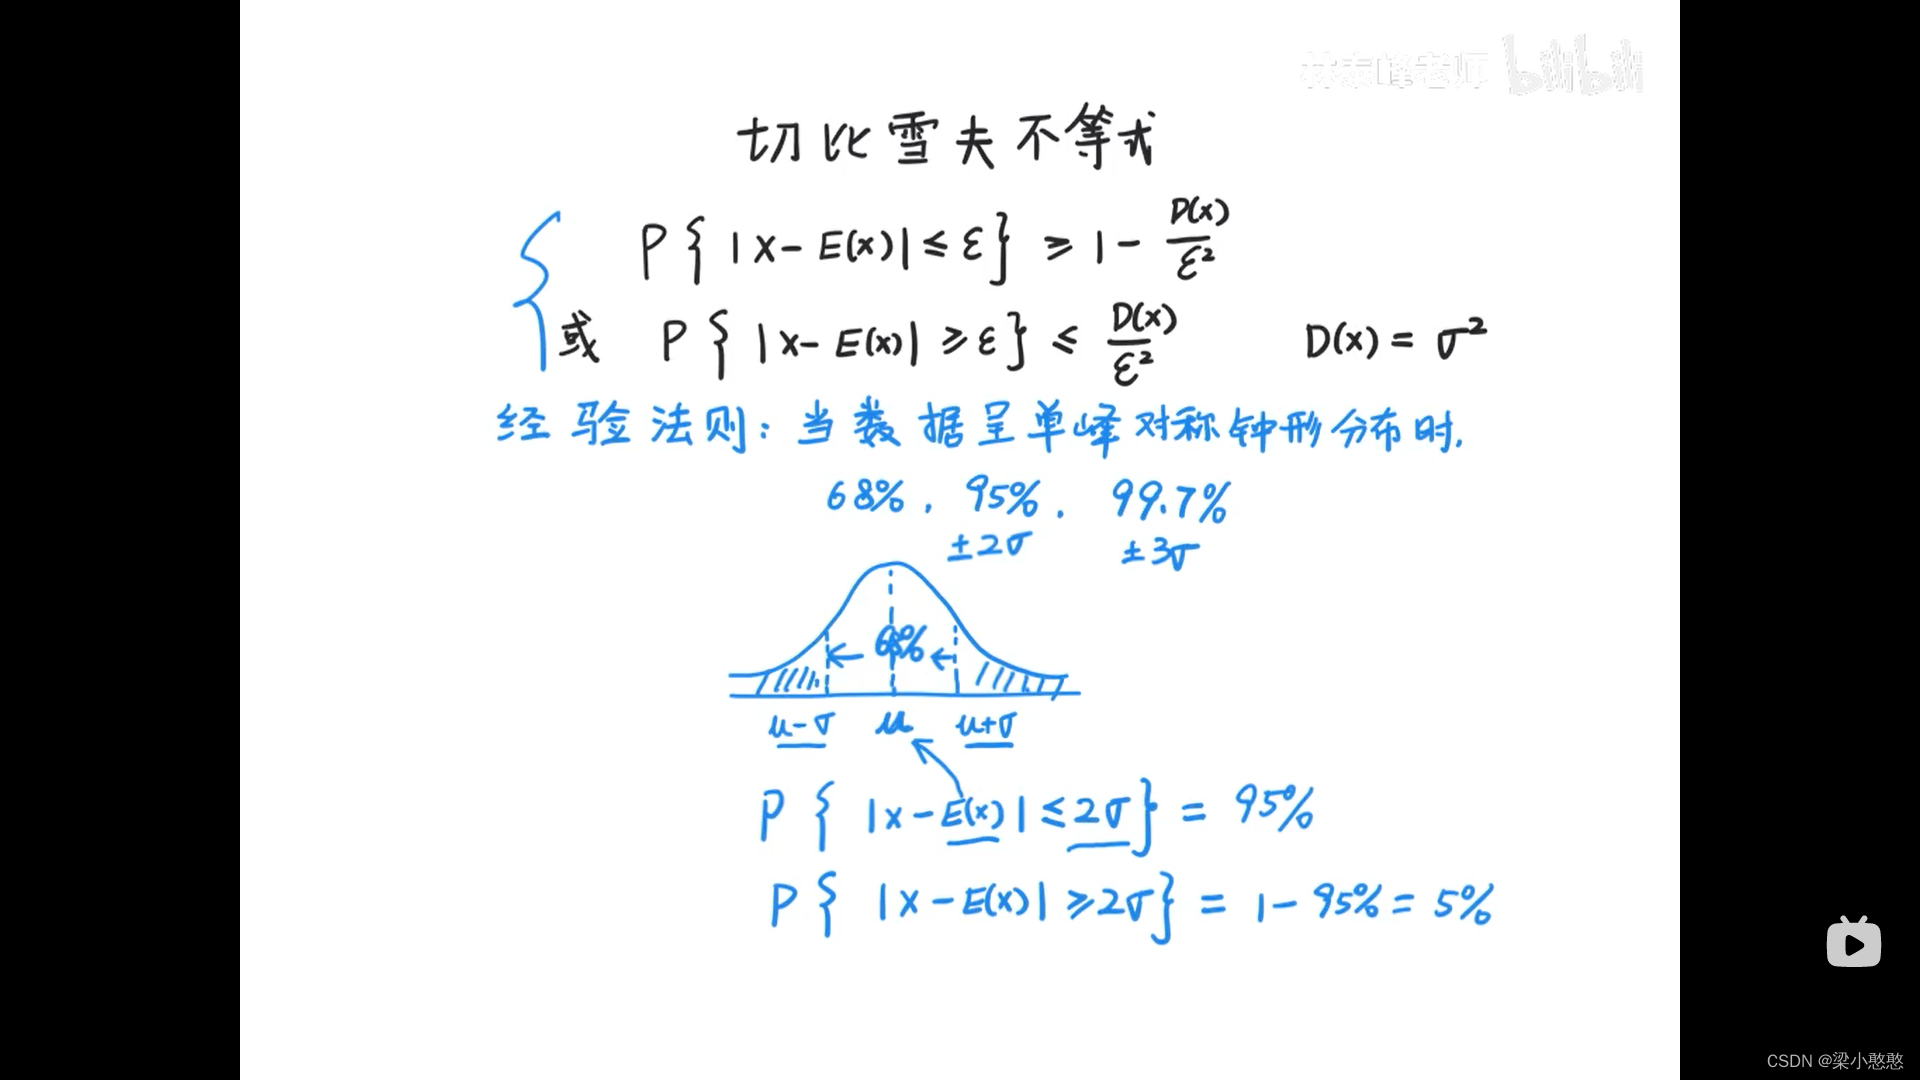 bilibili
切比雪夫不等式
P{|x-E(x)|≤ε}≥1-D(x)/ε²
或 P{|x-E(x)|≥ε}≤D(x)/ε² D(x)=σ²
经验法则:当数据呈单峰对称钟形分布时.
68%, 95%. 99.7%
±2σ ±3σ
68%
u-σ u u+σ
P{|x-E(x)|≤2σ}=95%
P{|x-E(x)|≥2σ}=1-95%=5%
CSDN @梁小憨憨